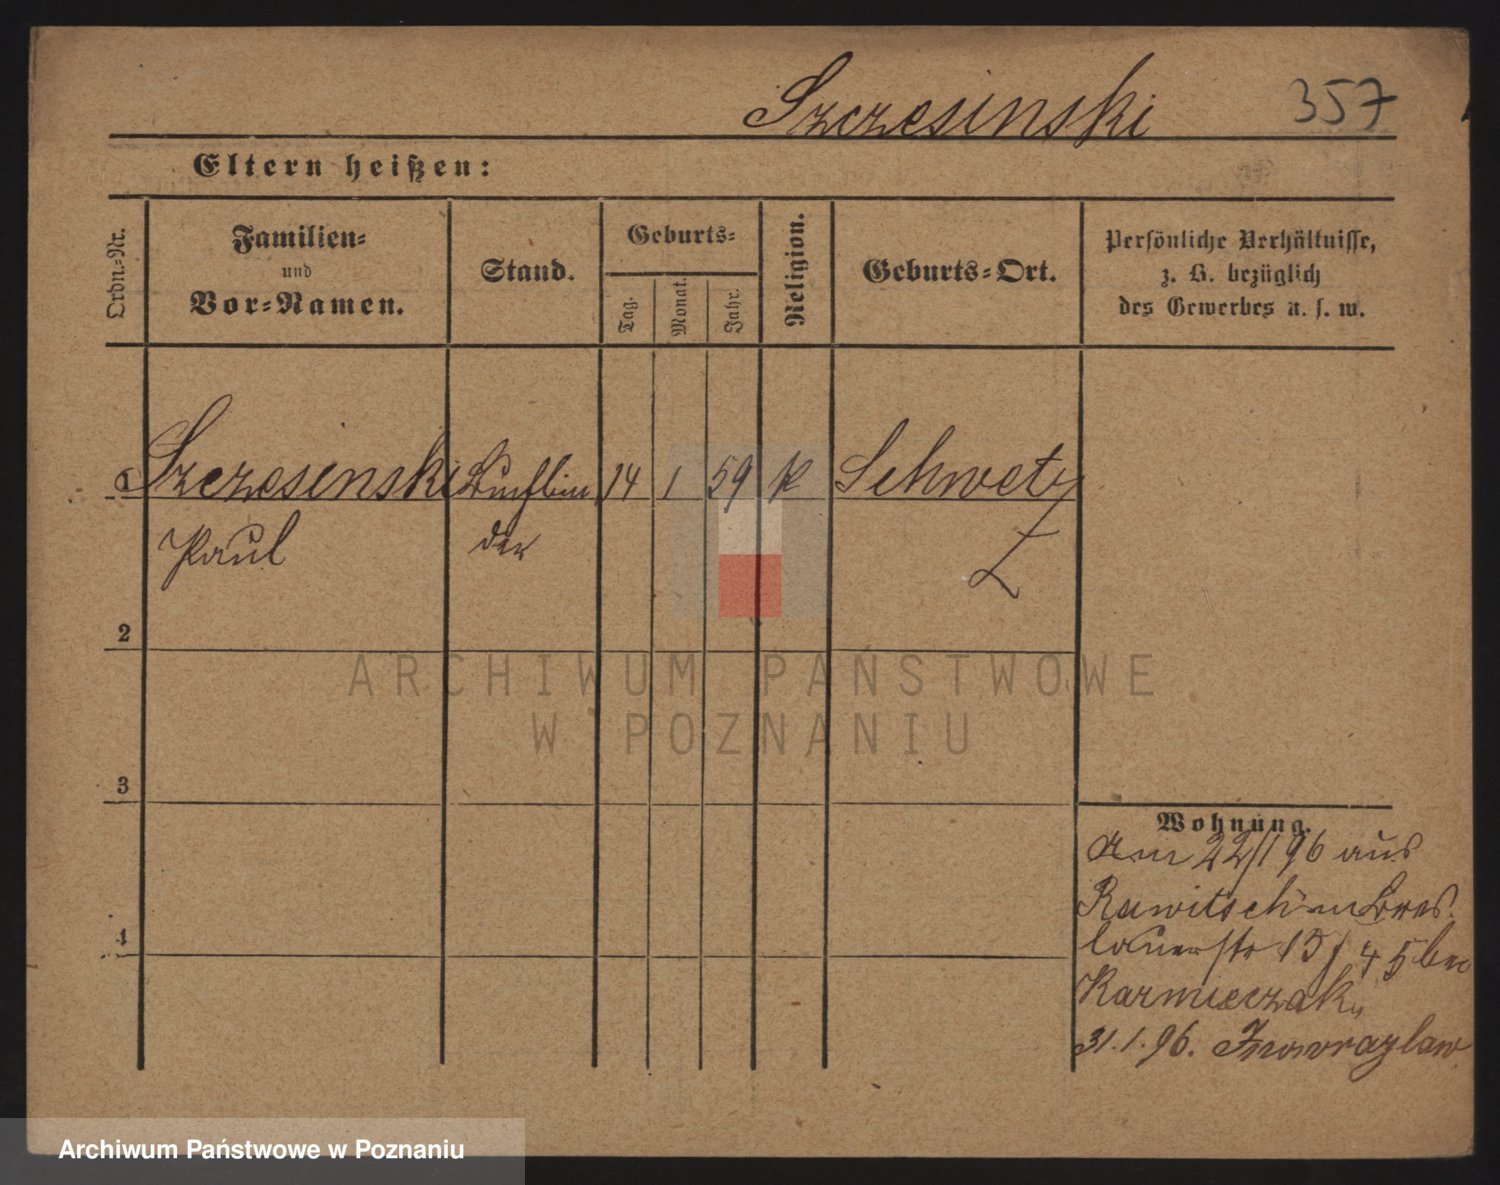 Szczesinski 357
Eltern heißen:
Ordn.-Nr.
Familien-
und
Vor-Namen.
Stand.
Geburts-
Tag.
Monat.
Jahr.
Religion.
Geburts-Ort.
Persönliche Verhältnisse,
z. B. bezüglich
des Gewerbes u. s. w.
1 Szczesinski Buchbin 14 1 59 k Schwetz
Paul der
2
3
4
Wohnung.
am 22/1 96 aus
Rawitsch in Bres
lauerstr 15 / 45 bei
Kazmieczak,
31.1.96. Inowrazlaw
ARCHIWUM PAŃSTWOWE
W POZNANIU
Archiwum Państwowe w Poznaniu